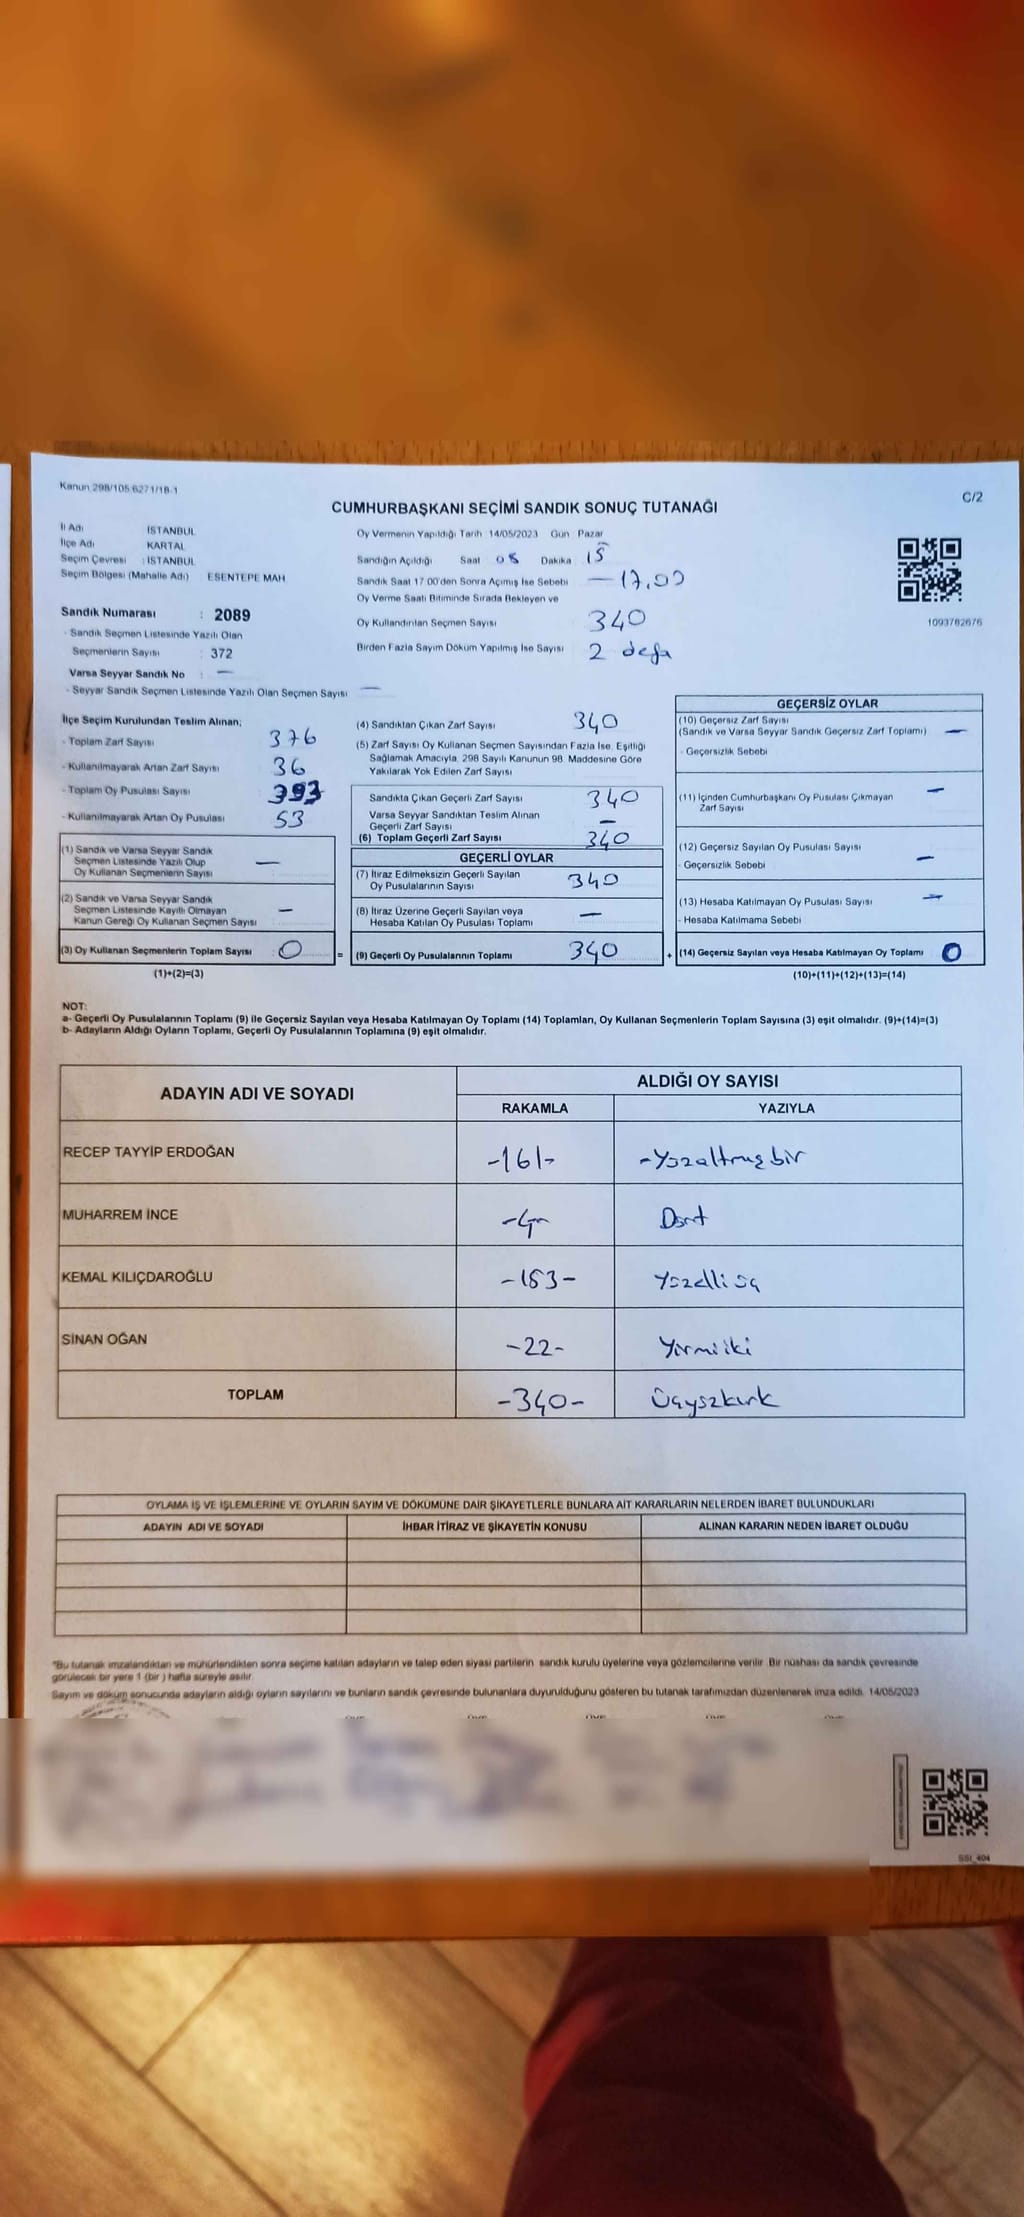 Kanun 298/105 6271/18-1
C/2
CUMHURBAŞKANI SEÇİMİ SANDIK SONUÇ TUTANAĞI
İl Adı İSTANBUL
İlçe Adı KARTAL
Seçim Çevresi : İSTANBUL
Seçim Bölgesi (Mahalle Adı) ESENTEPE MAH
Sandık Numarası : 2089
- Sandık Seçmen Listesinde Yazılı Olan
Seçmenlerin Sayısı : 372
Varsa Seyyar Sandık No : —
- Seyyar Sandık Seçmen Listesinde Yazılı Olan Seçmen Sayısı —
Oy Vermenin Yapıldığı Tarih 14/05/2023 Gün Pazar
Sandığın Açıldığı Saat 08 Dakika 15
Sandık Saat 17 00'den Sonra Açımış İse Sebebi — 17.00
Oy Verme Saati Bitiminde Sırada Bekleyen ve
Oy Kullandırılan Seçmen Sayısı 340
Birden Fazla Sayım Döküm Yapılmış İse Sayısı 2 defa
1093782676
İlçe Seçim Kurulundan Teslim Alınan;
- Toplam Zarf Sayısı 376
- Kullanılmayarak Artan Zarf Sayısı 36
- Toplam Oy Pusulası Sayısı 393
- Kullanılmayarak Artan Oy Pusulası 53
(1) Sandık ve Varsa Seyyar Sandık
Seçmen Listesinde Yazılı Olup
Oy Kullanan Seçmenlerin Sayısı —
(2) Sandık ve Varsa Seyyar Sandık
Seçmen Listesinde Kayıtlı Olmayan
Kanun Gereği Oy Kullanan Seçmen Sayısı —
(3) Oy Kullanan Seçmenlerin Toplam Sayısı : 0 =
(1)+(2)=(3)
(4) Sandıktan Çıkan Zarf Sayısı 340
(5) Zarf Sayısı Oy Kullanan Seçmen Sayısından Fazla İse, Eşitliği
Sağlamak Amacıyla, 298 Sayılı Kanunun 98. Maddesine Göre
Yakılarak Yok Edilen Zarf Sayısı
Sandıkta Çıkan Geçerli Zarf Sayısı 340
Varsa Seyyar Sandıktan Teslim Alınan
Geçerli Zarf Sayısı —
(6) Toplam Geçerli Zarf Sayısı 340
GEÇERLİ OYLAR
(7) İtiraz Edilmeksizin Geçerli Sayılan
Oy Pusulalarının Sayısı 340
(8) İtiraz Üzerine Geçerli Sayılan veya
Hesaba Katılan Oy Pusulası Toplamı —
(9) Geçerli Oy Pusulalarının Toplamı 340 +
GEÇERSİZ OYLAR
(10) Geçersiz Zarf Sayısı
(Sandık ve Varsa Seyyar Sandık Geçersiz Zarf Toplamı) —
- Geçersizlik Sebebi
(11) İçinden Cumhurbaşkanı Oy Pusulası Çıkmayan
Zarf Sayısı —
(12) Geçersiz Sayılan Oy Pusulası Sayısı
- Geçersizlik Sebebi —
(13) Hesaba Katılmayan Oy Pusulası Sayısı —
- Hesaba Katılmama Sebebi
(14) Geçersiz Sayılan veya Hesaba Katılmayan Oy Toplamı 0
(10)+(11)+(12)+(13)=(14)
NOT:
a- Geçerli Oy Pusulalarının Toplamı (9) ile Geçersiz Sayılan veya Hesaba Katılmayan Oy Toplamı (14) Toplamları, Oy Kullanan Seçmenlerin Toplam Sayısına (3) eşit olmalıdır. (9)+(14)=(3)
b- Adayların Aldığı Oyların Toplamı, Geçerli Oy Pusulalarının Toplamına (9) eşit olmalıdır.
ADAYIN ADI VE SOYADI
ALDIĞI OY SAYISI
RAKAMLA YAZIYLA
RECEP TAYYİP ERDOĞAN -161- -Yüzaltmışbir
MUHARREM İNCE -4- Dört
KEMAL KILIÇDAROĞLU -153- Yüzelliüç
SİNAN OĞAN -22- Yirmiiki
TOPLAM -340- Üçyüzkırk
OYLAMA İŞ VE İŞLEMLERİNE VE OYLARIN SAYIM VE DÖKÜMÜNE DAİR ŞİKAYETLERLE BUNLARA AİT KARARLARIN NELERDEN İBARET BULUNDUKLARI
ADAYIN ADI VE SOYADI İHBAR İTİRAZ VE ŞİKAYETİN KONUSU ALINAN KARARIN NEDEN İBARET OLDUĞU
"Bu tutanak imzalandıktan ve mühürlendikten sonra seçime katılan adayların ve talep eden siyasi partilerin sandık kurulu üyelerine veya gözlemcilerine verilir. Bir nüshası da sandık çevresinde
görülecek bir yere 1 (bir ) hafta süreyle asılır.
Sayım ve döküm sonucunda adayların aldığı oyların sayılarını ve bunların sandık çevresinde bulunanlara duyurulduğunu gösteren bu tutanak tarafımızdan düzenlenerek imza edildi. 14/05/2023
SSI_404